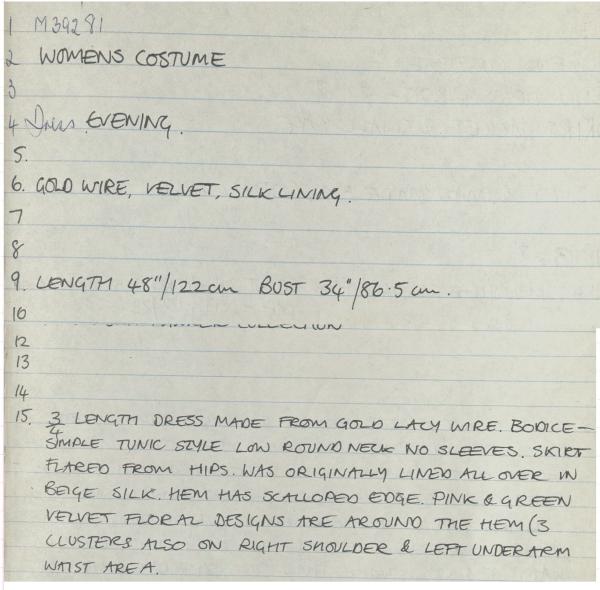 1 M39281
2 WOMENS COSTUME
3
4 Dress EVENING.
5.
6. GOLD WIRE, VELVET, SILK LINING.
7
8
9. LENGTH 48"/122cm BUST 34"/86.5cm.
10
COLLECTION
12
13
14
15. 3/4 LENGTH DRESS MADE FROM GOLD LACY WIRE. BODICE –
SIMPLE TUNIC STYLE LOW ROUND NECK NO SLEEVES. SKIRT
FLARED FROM HIPS. WAS ORIGINALLY LINED ALL OVER IN
BEIGE SILK. HEM HAS SCALLOPED EDGE. PINK & GREEN
VELVET FLORAL DESIGNS ARE AROUND THE HEM (3
CLUSTERS ALSO ON RIGHT SHOULDER & LEFT UNDERARM
WAIST AREA.